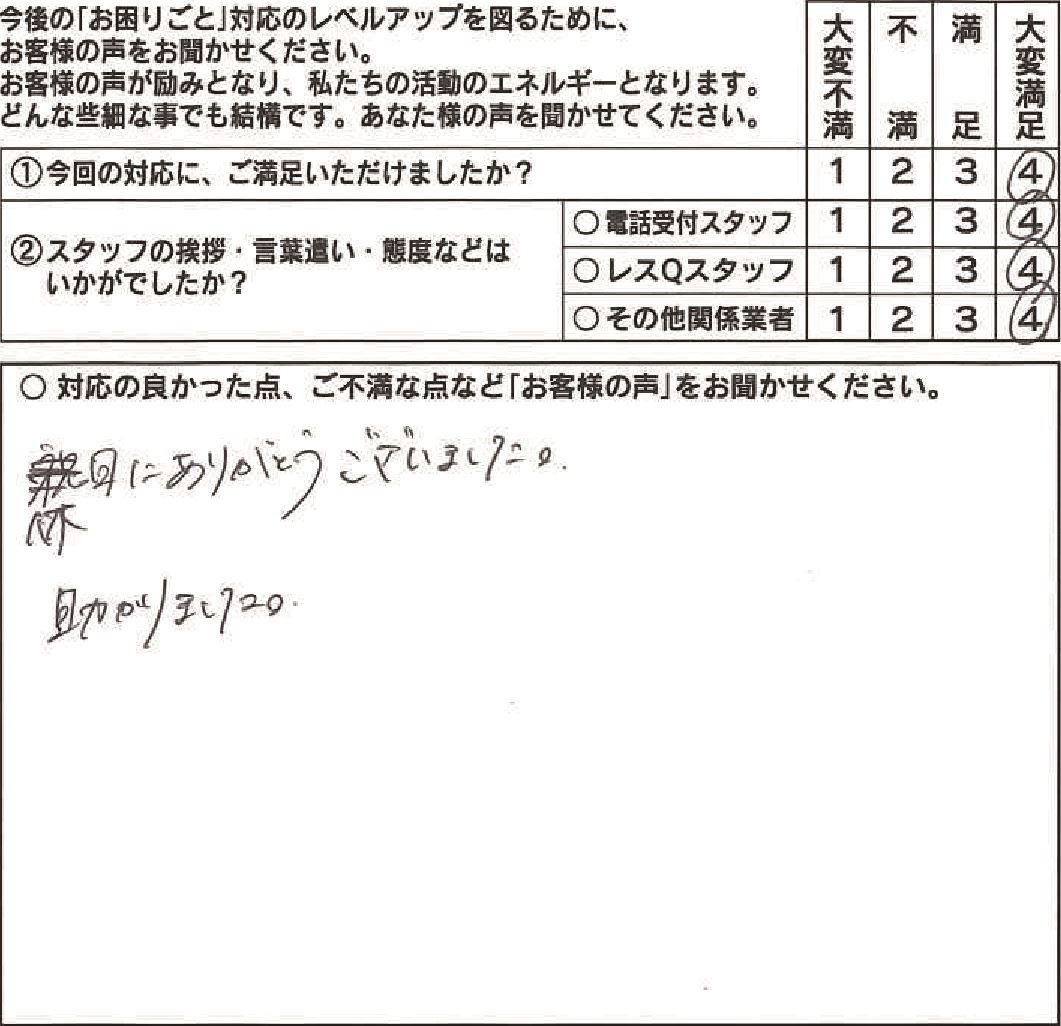 今後の「お困りごと」対応のレベルアップを図るために、
お客様の声をお聞かせください。
お客様の声が励みとなり、私たちの活動のエネルギーとなります。
どんな些細な事でも結構です。あなた様の声を聞かせてください。
大変不満 不満 満足 大変満足
①今回の対応に、ご満足いただけましたか? 1 2 3 4
②スタッフの挨拶・言葉遣い・態度などは
いかがでしたか?
○電話受付スタッフ 1 2 3 4
○レスQスタッフ 1 2 3 4
○その他関係業者 1 2 3 4
○ 対応の良かった点、ご不満な点など「お客様の声」をお聞かせください。
休
日にありがとうございました。
助かりました。